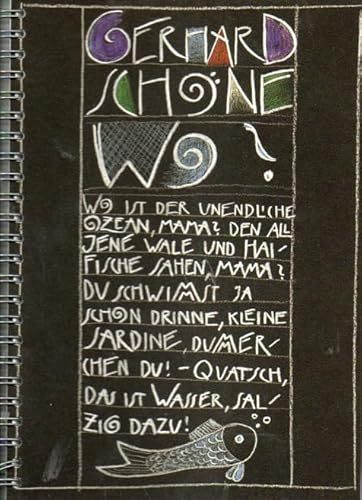 GERHARD
SCHÖNE
WO?
WO IST DER UNENDLICHE
OZEAN, MAMA? DEN ALL
JENE WALE UND HAI-
FISCHE SAHEN, MAMA?
DU SCHWIMST JA
SCHON DRINNE, KLEINE
SARDINE, DUMER-
CHEN DU! - QUATSCH,
DAS IST WASSER, SAL-
ZIG DAZU!